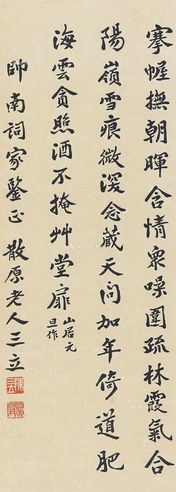 搴幄撫朝暉含情衆噪圍疏林霞氣合
陽嶺雪痕微漫念藏天問加年倚道肥
海雲貪照酒不掩艸堂扉
山居元
旦作
帥南詞家鑒正 散原老人三立